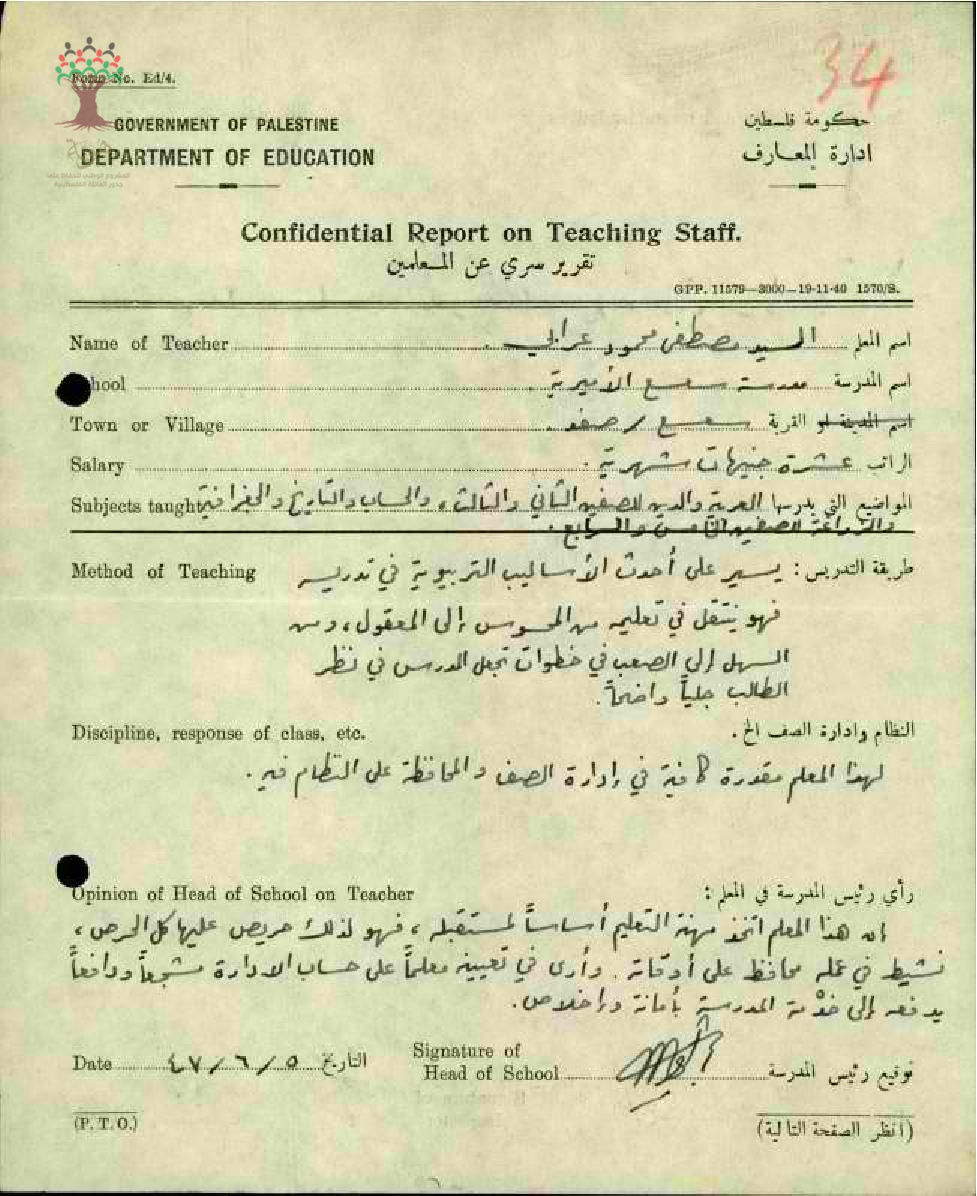 34
Form No. Ed/4.
GOVERNMENT OF PALESTINE
حكومة فلسطين
DEPARTMENT OF EDUCATION
ادارة المعارف
Confidential Report on Teaching Staff.
تقرير سري عن المعلمين
GPP. 11579—3000—19-11-40 1570/S.
Name of Teacher السيد مصطفى محمود عرابي . اسم المعلم
School مدرسة سعسع الأميرية . اسم المدرسة
Town or Village سعسع / صفد . اسم المدينة او القرية
Salary عشرة جنيهات شهرية . الراتب
Subjects taught المواضيع التي يدرسها العربية والدين للصفين الثاني والثالث، والحساب والتاريخ والجغرافية
والزراعة للصفين الخامس والسابع .
Method of Teaching طريقة التدريس : يسير على أحدث الأساليب التربيوية في تدريسه
فهو ينتقل في تعليمه من المحسوس إلى المعقول ، ومن
السهل إلى الصعب في خطوات تجعل الدرس في نظر
الطالب جلياً واضحاً.
Discipline, response of class, etc. النظام وادارة الصف الخ.
لهذا المعلم مقدرة كافية في إدارة الصف والمحافظة على النظام فيه .
Opinion of Head of School on Teacher رأي رئيس المدرسة في المعلم :
إن هذا المعلم اتخذ مهنة التعليم أساساً لمستقبله ، فهو لذلك حريص عليها كل الحرص ،
نشيط في عمله محافظ على أوقاته . وأرى في تعيينه معلماً على حساب الادارة مشجعاً ودافعاً
يدفعه إلى خدْمة المدرسة بأمانة وإخلاص .
Date ٤٧/٦/٥ التاريخ
Signature of
Head of School توقيع رئيس المدرسة
(P. T. O.)
(انظر الصفحة التالية)